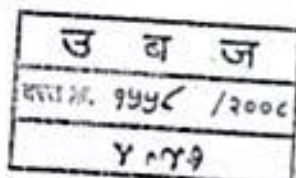 उ ब ज
दस्त क्र. १५५८ /२००८
४ ०४७